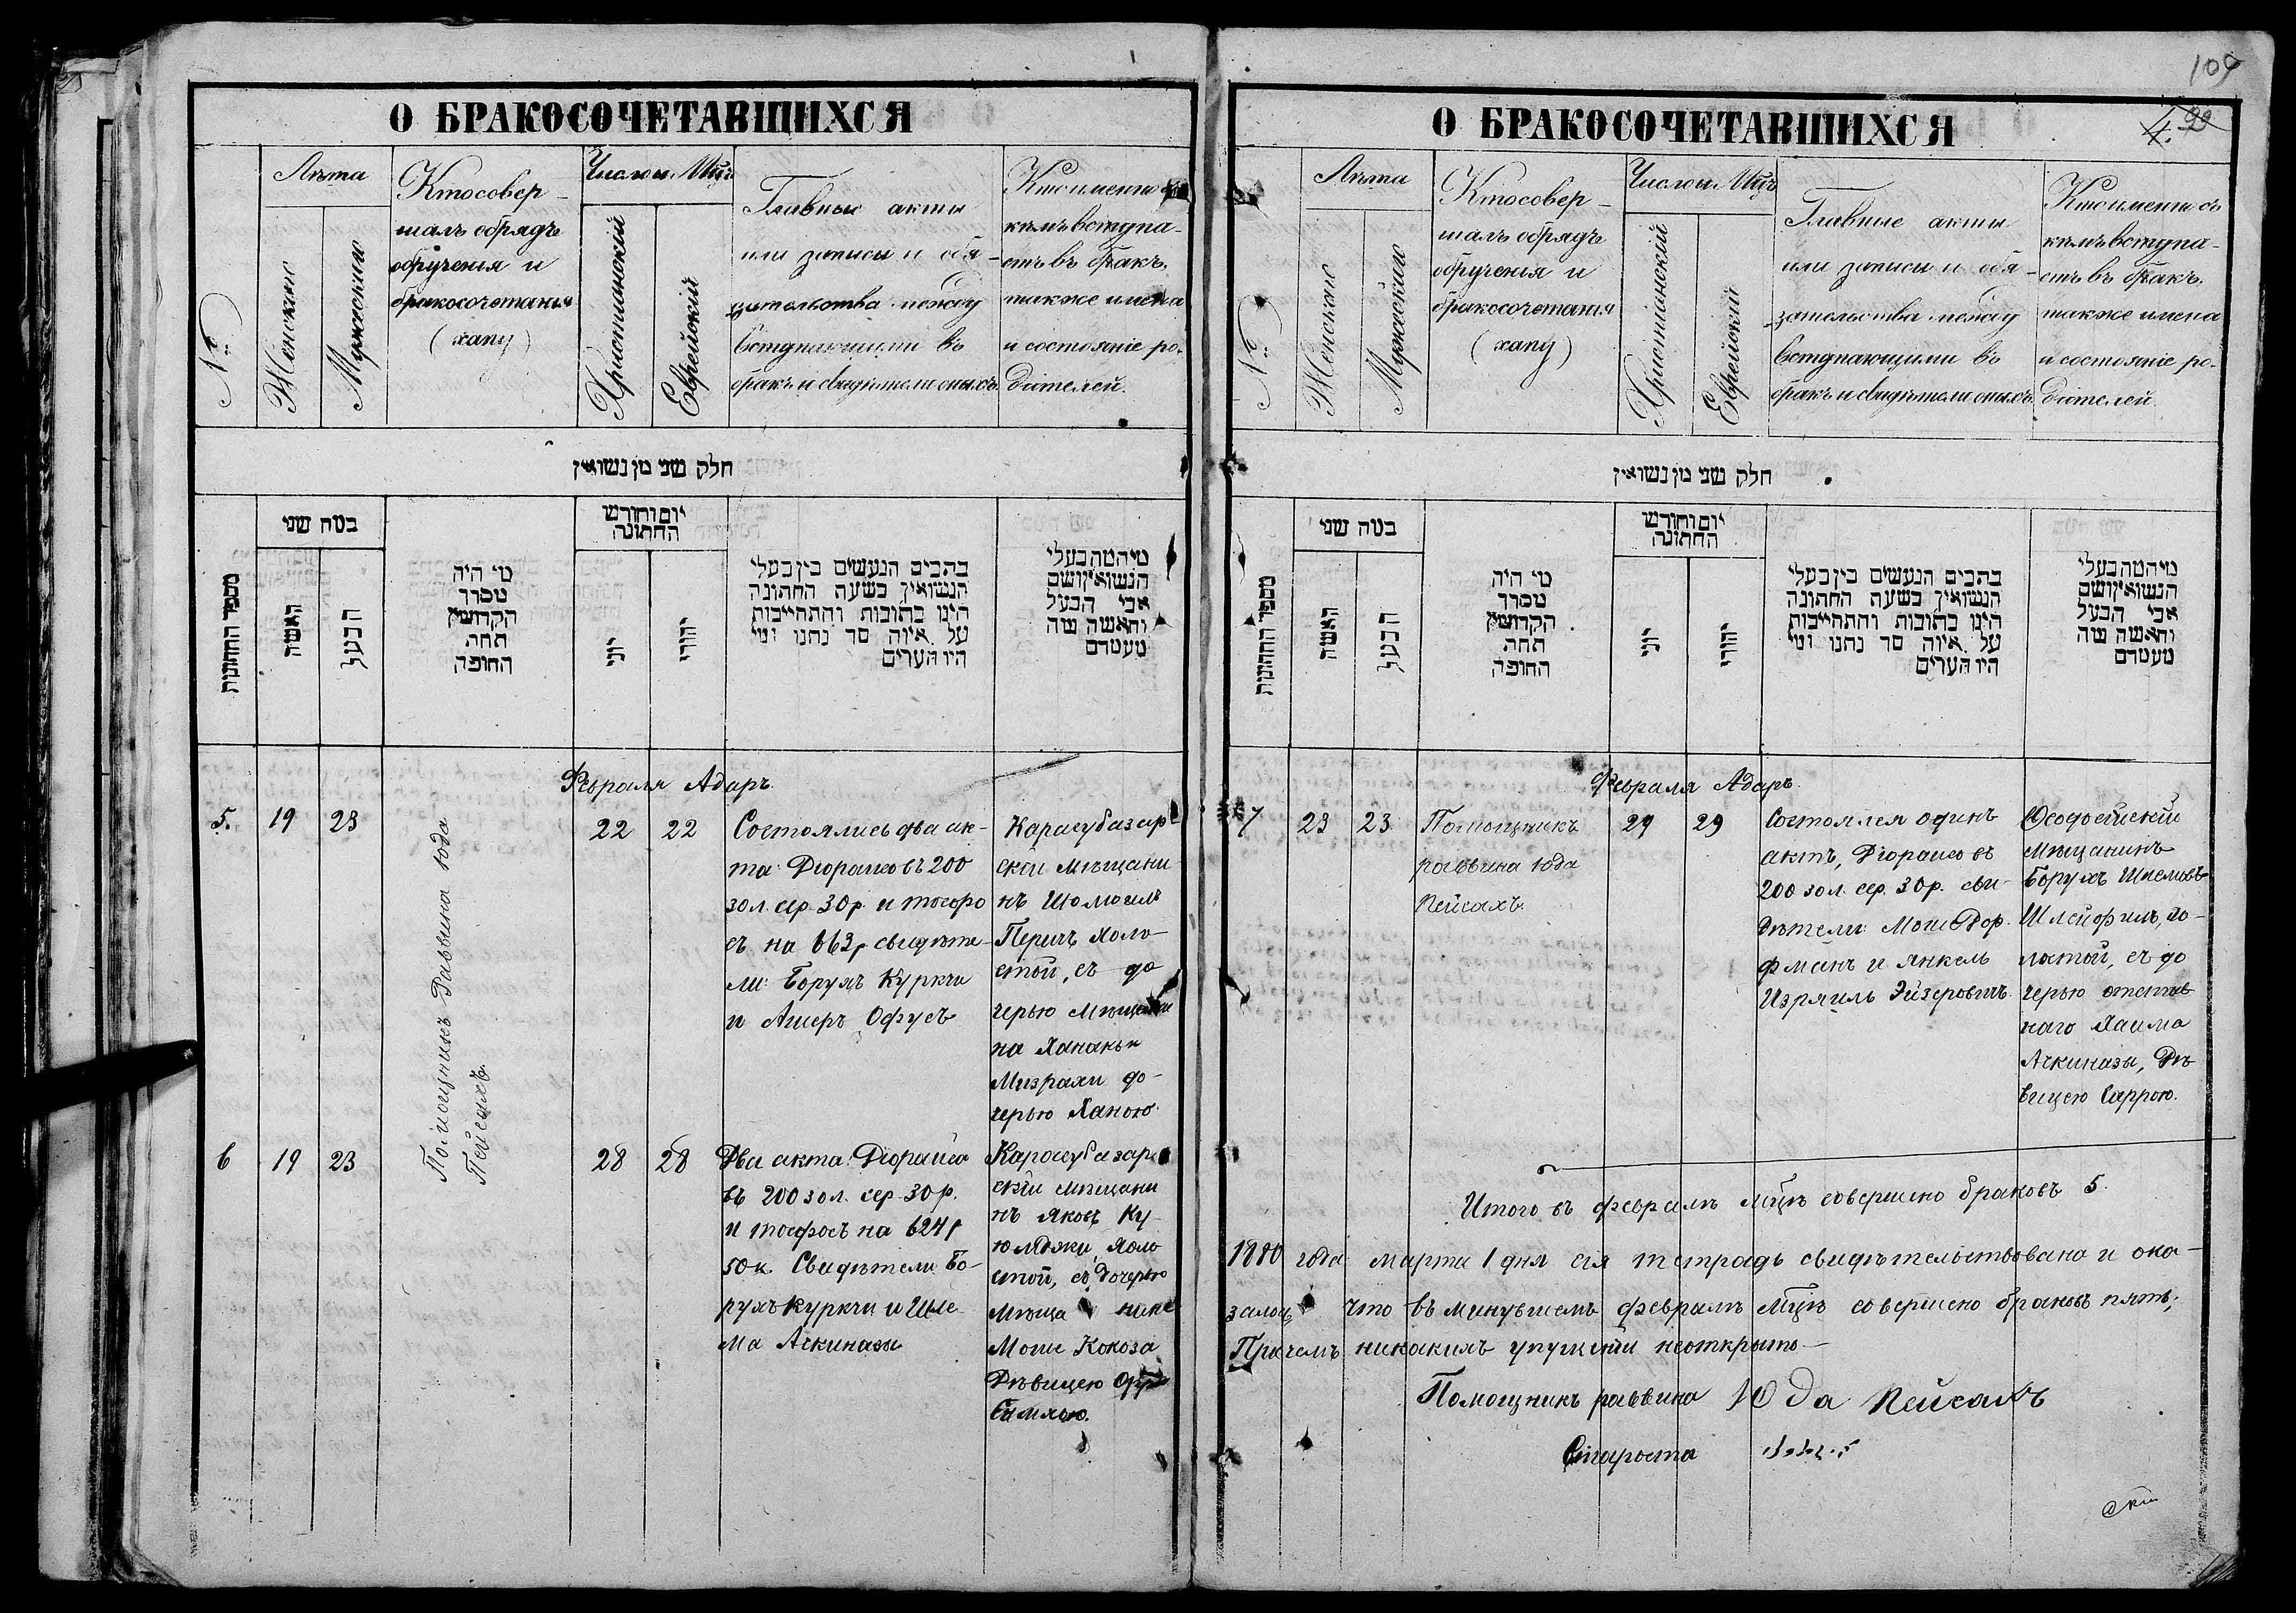 109
4. 99
О БРАКОСОЧЕТАВШИХСЯ
№
Лѣта
Женскія
Мужескія
Кто совер-
шалъ обрядъ
обрученія и
бракосочетанія
(хапу)
Число и Мцъ
Христіанскій
Еврейскій
Главные акты
или записи и обя-
зательства между
вступающими въ
бракъ и свидѣтели оныхъ
Кто именно съ
кѣмъ вступа-
етъ въ бракъ.
также имена
и состояніе ро-
дителей.
חלק שני מן נשואין
מספר החתונות
במה שני
האשה
הבעל
מי היה
מסדר
הקדושין
תחת
החופה
יום וחודש
החתונה
יוני
יהודי
בהכים הנעשים בין בעלי
הנשואין בשעת החתונה
היינו כתובות והתחייבות
על איזה סך נתנו ומי
היו העדים
מי המה בעלי
הנשואין ושם
אבי הבעל
והאשה שה
מעמדם
Февраля Адаръ
5.
19
23
Помощникъ Раввина Юда
Пейсахъ.
22
22
Состоялись два ак-
та: Дюраисо въ 200
зол. сер. 30 р. и тосфо
съ на 663 р свидѣте-
ли: Борухъ Куркчи
и Ашеръ Офусъ
Карасубазар-
скій мѣщани-
нъ Шомоель
Перичъ холо-
стой, съ до
черью мѣщани
на Хананьи
Мизрахи до-
черью Ханою.
6
19
23
28
28
Два акта: Дюраисо
въ 200 зол. сер. 30 р.
и тосфосъ на 624 р
50 к. Свидѣтели Бо-
рухъ Куркчи и Шле-
ма Ачкинази
Карасубазар-
скій мѣщани
нъ Яковъ Ку-
юмджи, холо
стой, съ дочерью
мѣща нина
Моше Кокоза
Дѣвицею
Симхою.
О БРАКОСОЧЕТАВШИХСЯ
№
Лѣта
Женскія
Мужескія
Кто совер-
шалъ обрядъ
обрученія и
бракосочетанія
(хапу)
Число и Мцъ
Христіанскій
Еврейскій
Главные акты
или записи и обя-
зательства между
вступающими въ
бракъ и свидѣтели оныхъ
Кто именно съ
кѣмъ вступа-
етъ въ бракъ.
также имена
и состояніе ро-
дителей.
חלק שני מן נשואין
מספר החתונות
במה שני
האשה
הבעל
מי היה
מסדר
הקדושין
תחת
החופה
יום וחודש
החתונה
יוני
יהודי
בהכים הנעשים בין בעלי
הנשואין בשעת החתונה
היינו כתובות והתחייבות
על איזה סך נתנו ומי
היו העדים
מי המה בעלי
הנשואין ושם
אבי הבעל
והאשה שה
מעמדם
Февраля Адаръ
7
23
23
Помощникъ
раввина Юда
Пейсахъ.
29
29
Состоялся одинъ
актъ, Дюраисо въ
200 зол. сер. 30 р. сви-
дѣтели: Моше Дор-
фманъ и Янкель
Израиль Эйзеровичъ.
Ѳеодосійскій
мѣщанинъ
Борухъ Шлемовъ
Шлейферъ, хо-
лостой, съ до
черью отстав
наго Хаима
Ачкинази, Дѣ
вицею Саррою.
Итого въ февралѣ мцѣ совершено браковъ 5.
1880 года марта 1 дня сія тетрадь свидѣтельствована и ока-
залось что въ минувшемъ февралѣ мцѣ совершено браковъ пять;
Причемъ никакихъ упущеній неоткрыто—
Помощникъ раввина Юда Пейсахъ
Староста